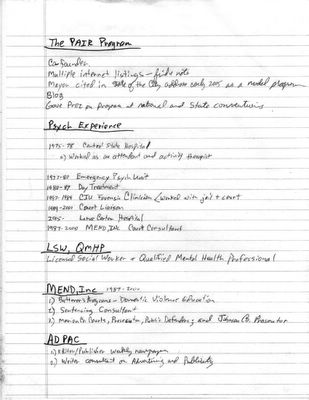 The PAIR Program
Co-Founder
Multiple internet listings - find & note
Mayor cited in State of the City address early 2005 as a model program
Blog
Gave Prez on program at national and state conventions
Psych Experience
1975-78 Central State Hospital
a) Worked as an attendant and activity therapist
1977-80 Emergency Psych Unit
1980-87 Day Treatment
1987-1989 CIU Forensic Clinician / worked with jail + court
1989-2001 Court Liaison
2005- Larue Carter Hospital
1987-2000 MEND, Inc Court Consultant
LSW, QMHP
Licensed Social Worker + Qualified Mental Health Professional
MEND, Inc 1987-2000
1) Batterers Programs - Domestic Violence Education
2) Sentencing Consultant
3) Marion Co Courts, Prosecutor, Public Defenders and Johnson Co. Prosecutor
ADPAC
1) Editor/Publisher weekly newspaper
2) Writer consultant on Advertising and Publicity